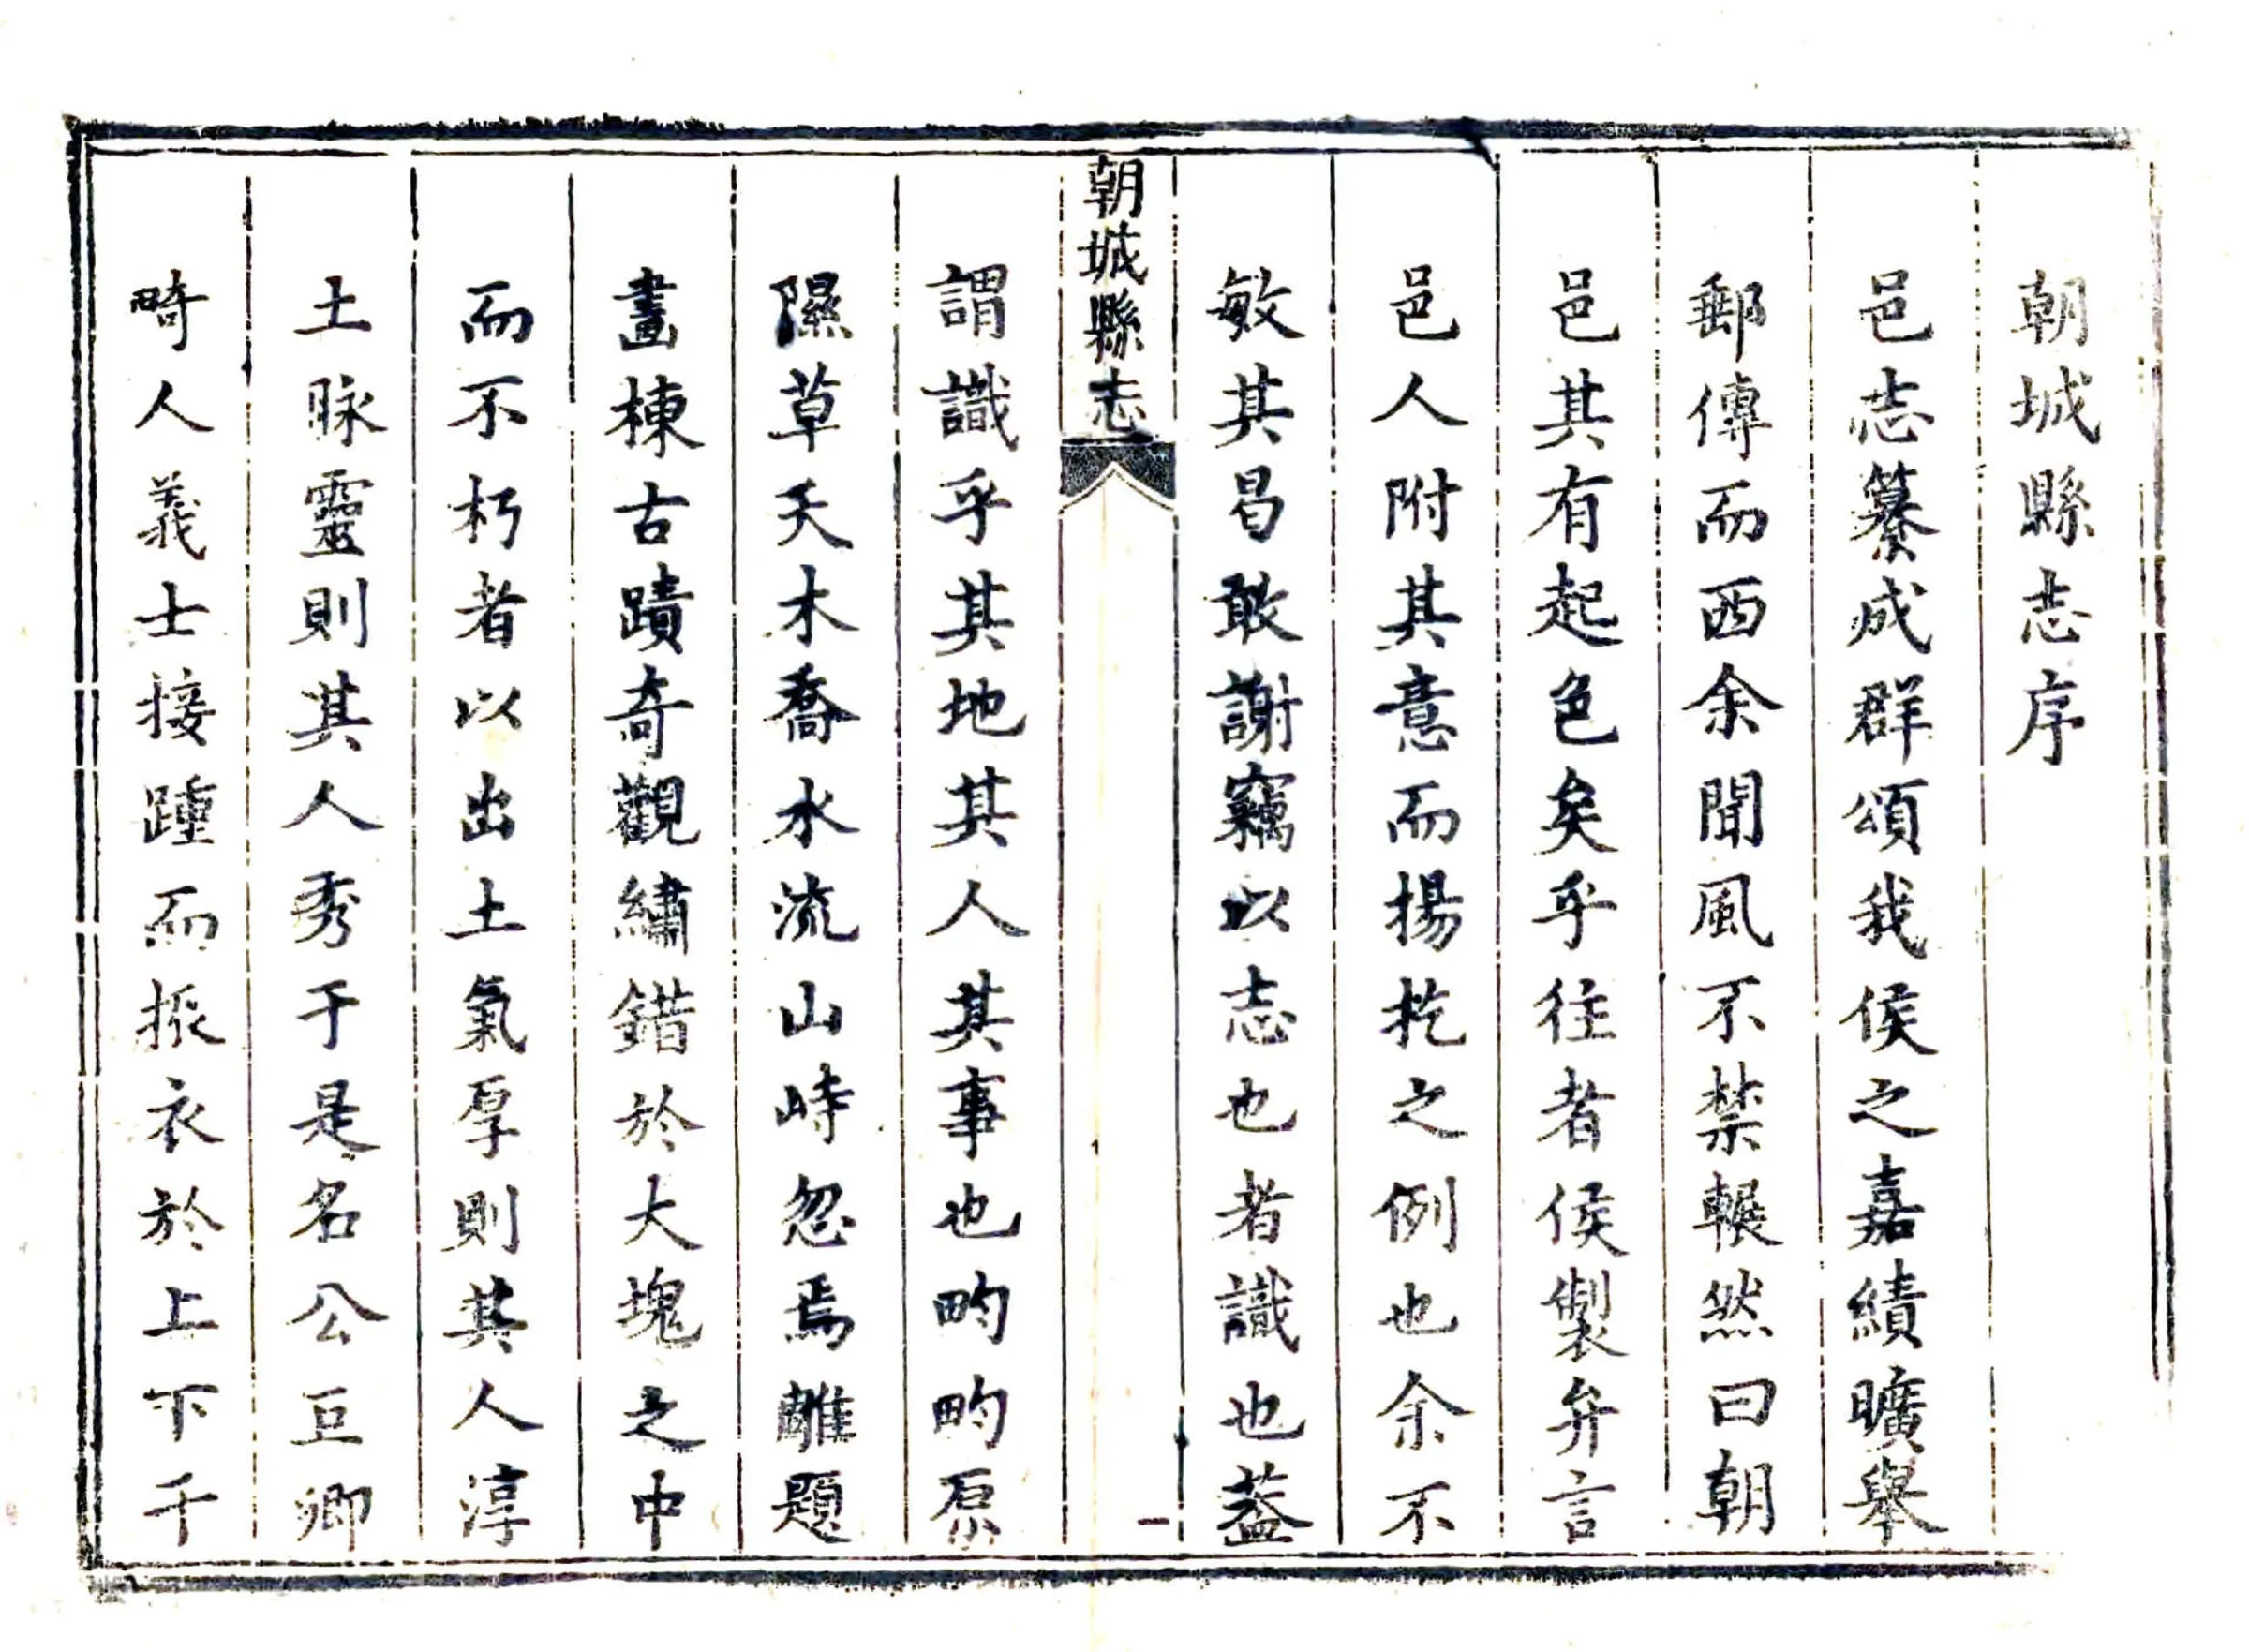 朝城縣志序
邑志纂成群頌我侯之嘉績曠舉
郵傳而西余聞風不禁囅然曰朝
邑其有起色矣乎徃者侯製弁言
邑人附其意而揚扢之例也余不
敏其曷敢謝竊以志也者識也葢
朝城縣志
一
謂識乎其地其人其事也畇畇原
隰草夭木喬水流山峙忽焉雕題
畫棟古蹟奇觀繡錯於大塊之中
而不朽者以出土氣厚則其人淳
土脉靈則其人秀于是名公巨卿
畸人義士接踵而振衣於上下千